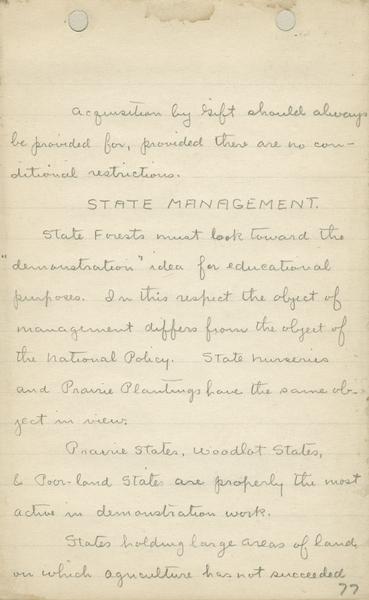 Acquisition by Gift should always
be provided for, provided there are no con-
ditional restrictions.
STATE MANAGEMENT.
State Forests must look toward the
"demonstration" idea for educational
purposes. In this respect the object of
management differs from the object of
the National Policy. State nurseries
and Prairie Plantings have the same ob-
ject in view.
Prairie States, Woodlot States,
& Poor-land States are properly the most
active in demonstration work.
States holding large areas of land
on which agriculture has not succeeded
77